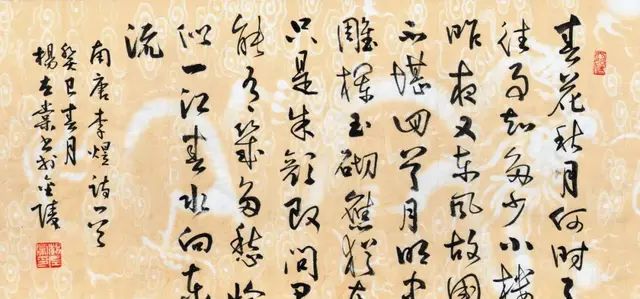 春花秋月何时了
往事知多少小楼
昨夜又东风故国
不堪回首月明中
雕栏玉砌应犹在
只是朱颜改问君
能有几多愁恰
似一江春水向东
流
南唐李煜诗一首
癸巳春月
杨书于金陵